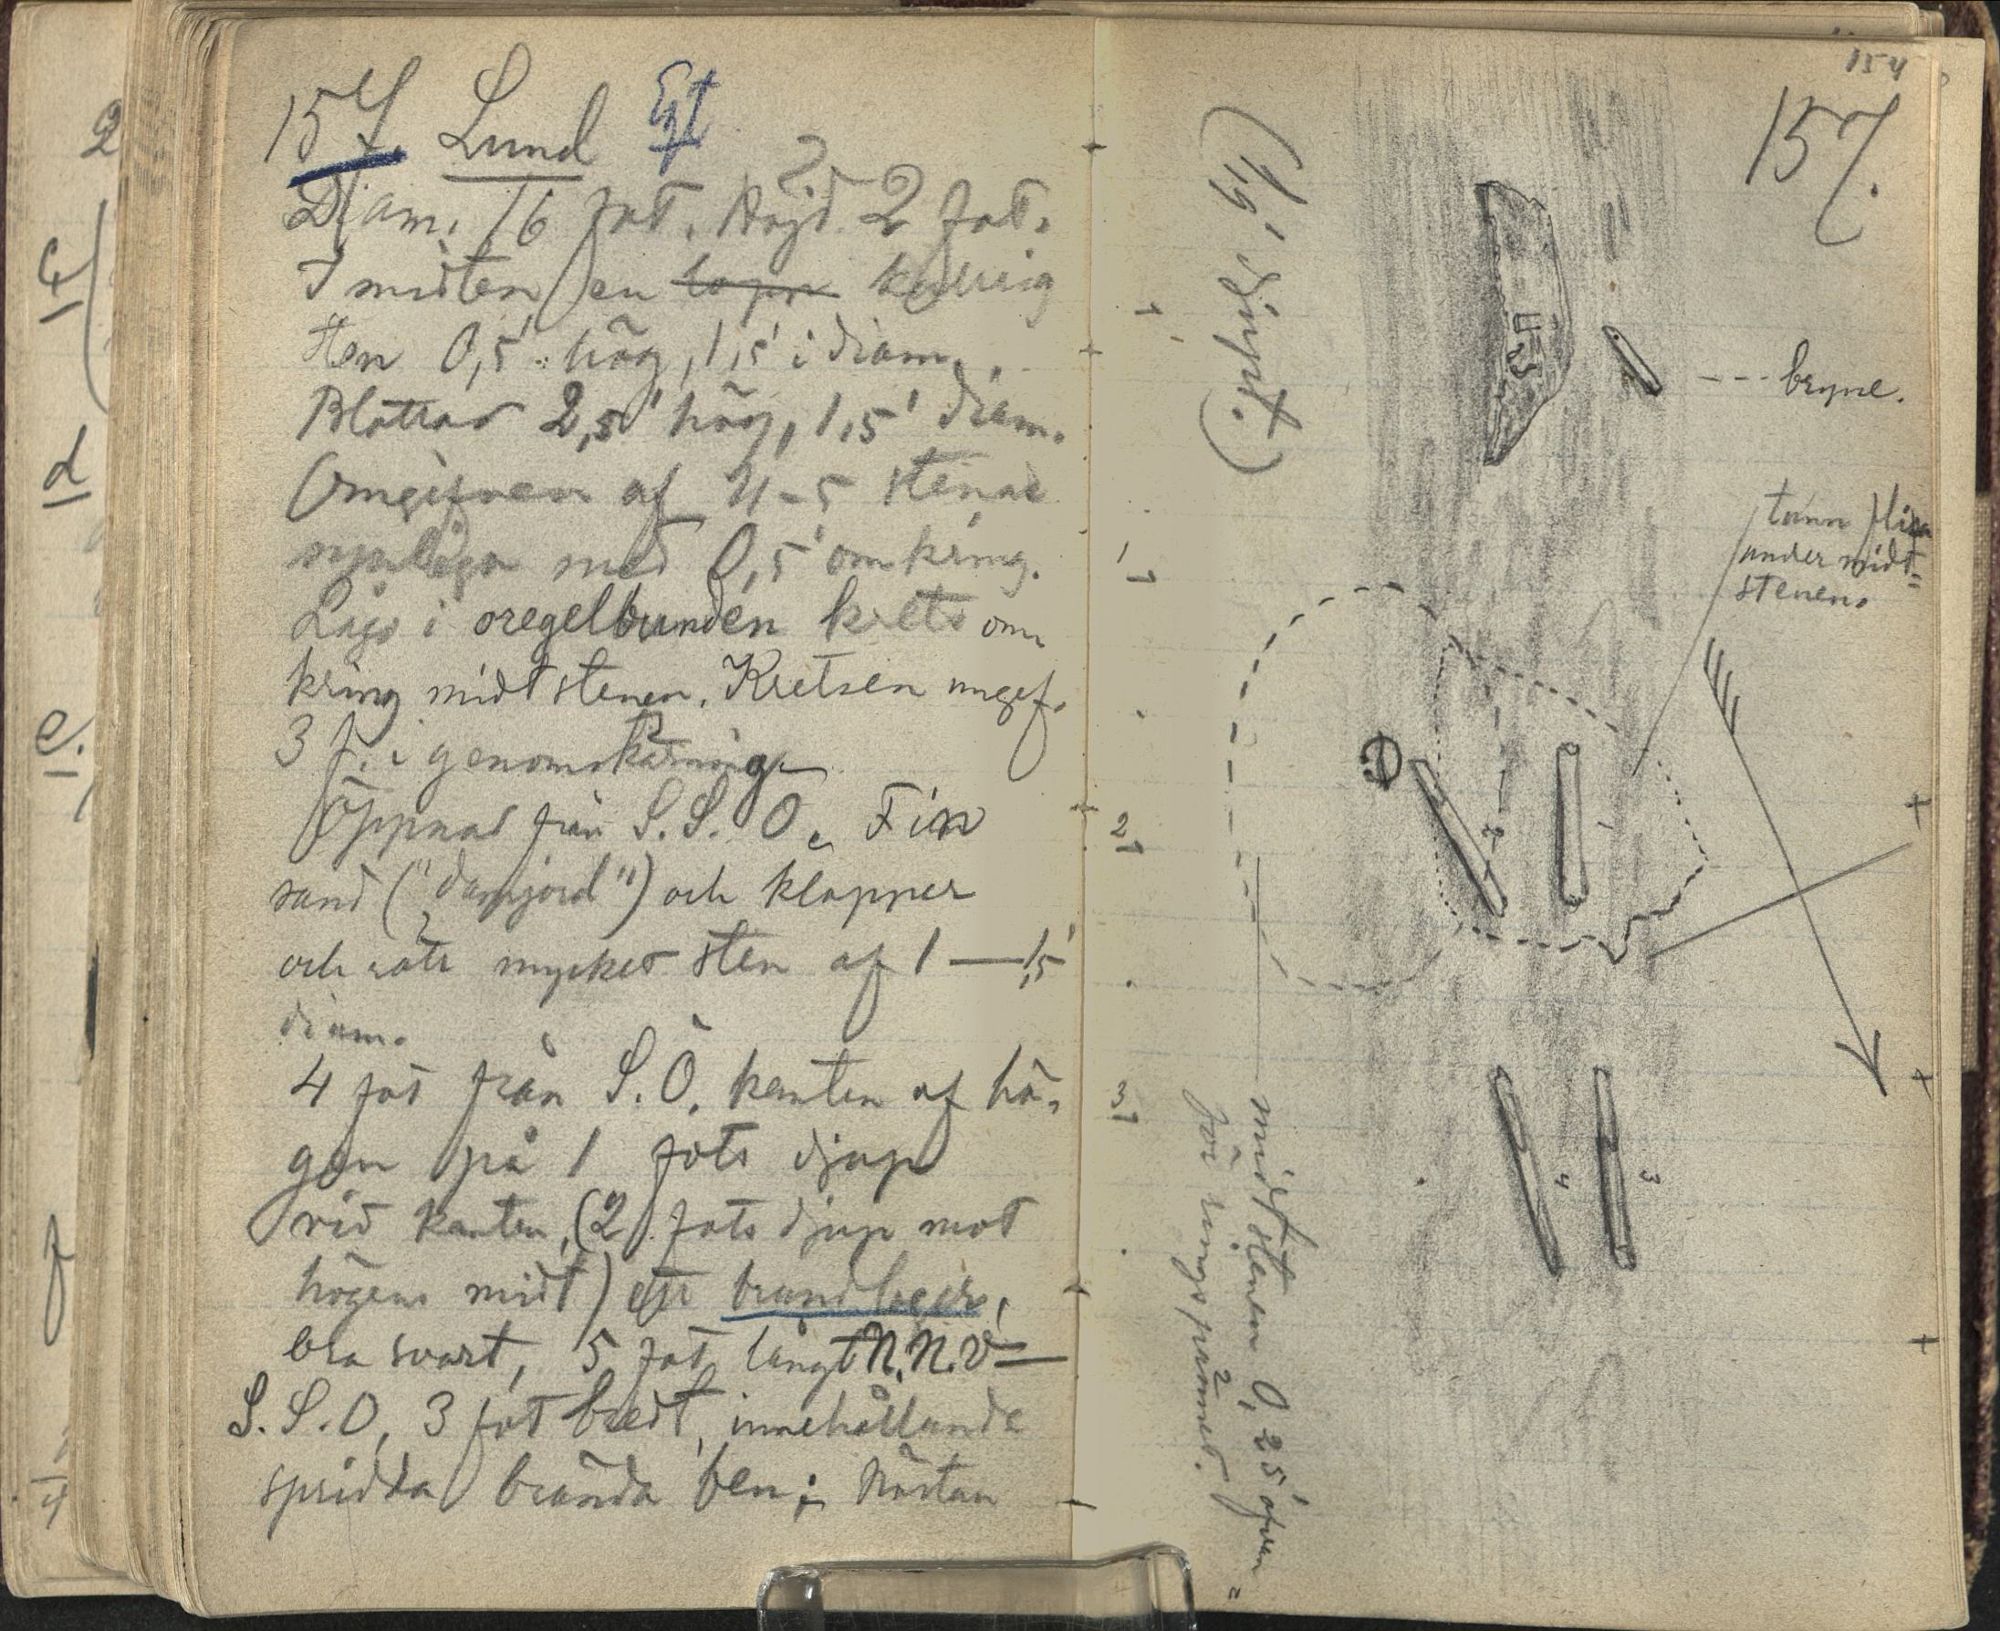 157. Lund
Diam. 16 fot. Höjd. 2 fot.
I midten en kullrig
sten 0,5' hög, 1,5' i diam.
Blottad 2,5' hög, 1,5' diam.
Omgifven af 4-5 stenar
synliga med 0,5' omkring.
Lågo i oregelbunden krets om
kring midtstenen. Kretsen ungef.
3 f. i genomskärning
Öppnad från S.S.O. Fin
sand ("damjord") och klapper
och rätt mycket sten af 1 — 1,5'
diam.
4 fot från S.Ö. kanten af hö-
gen på 1 fots djup
vid kanten (2 fots djup mot
högens midt) ett brandlager,
bra svart, 5 fot långt N.N.V —
S.S.O, 3 fot bredt, innehållande
spridda brända ben; Nästan
154
157.
bryne.
tunn
under midt-
stenen.
1
2
3
1
2
3
4
midtstenen 0,25' ofvan-